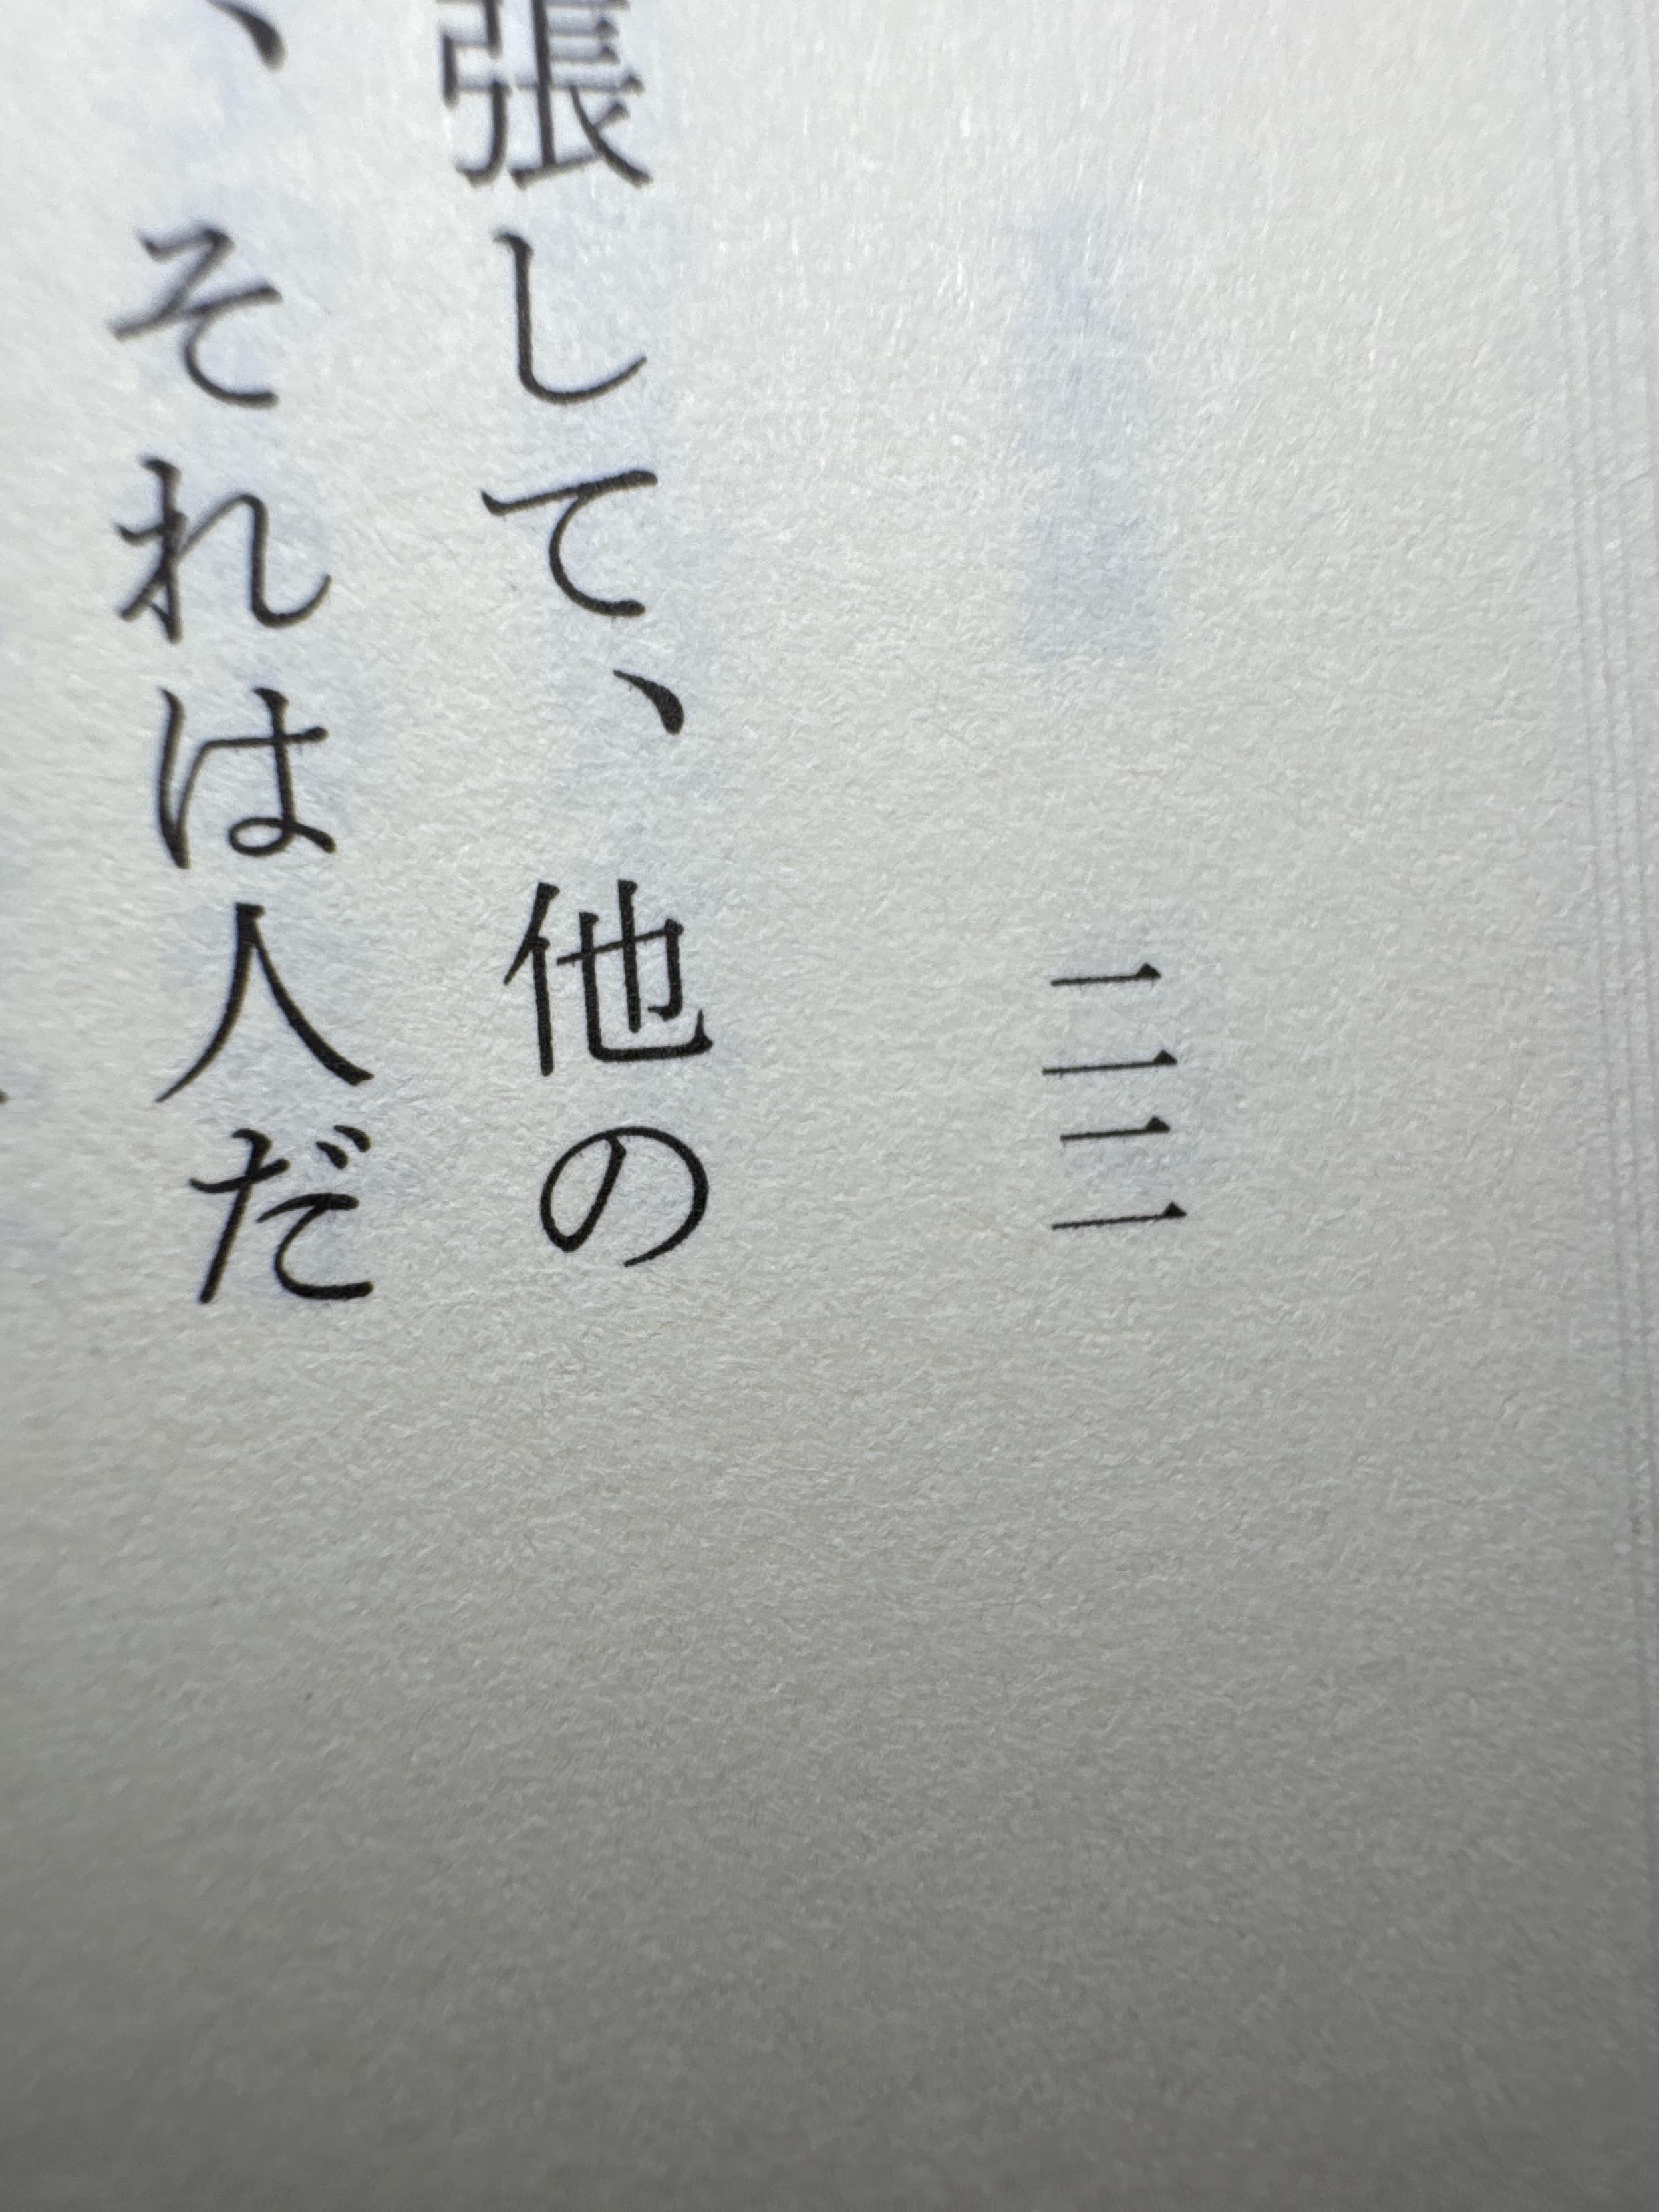 二二
張して、他の
、それは人だ